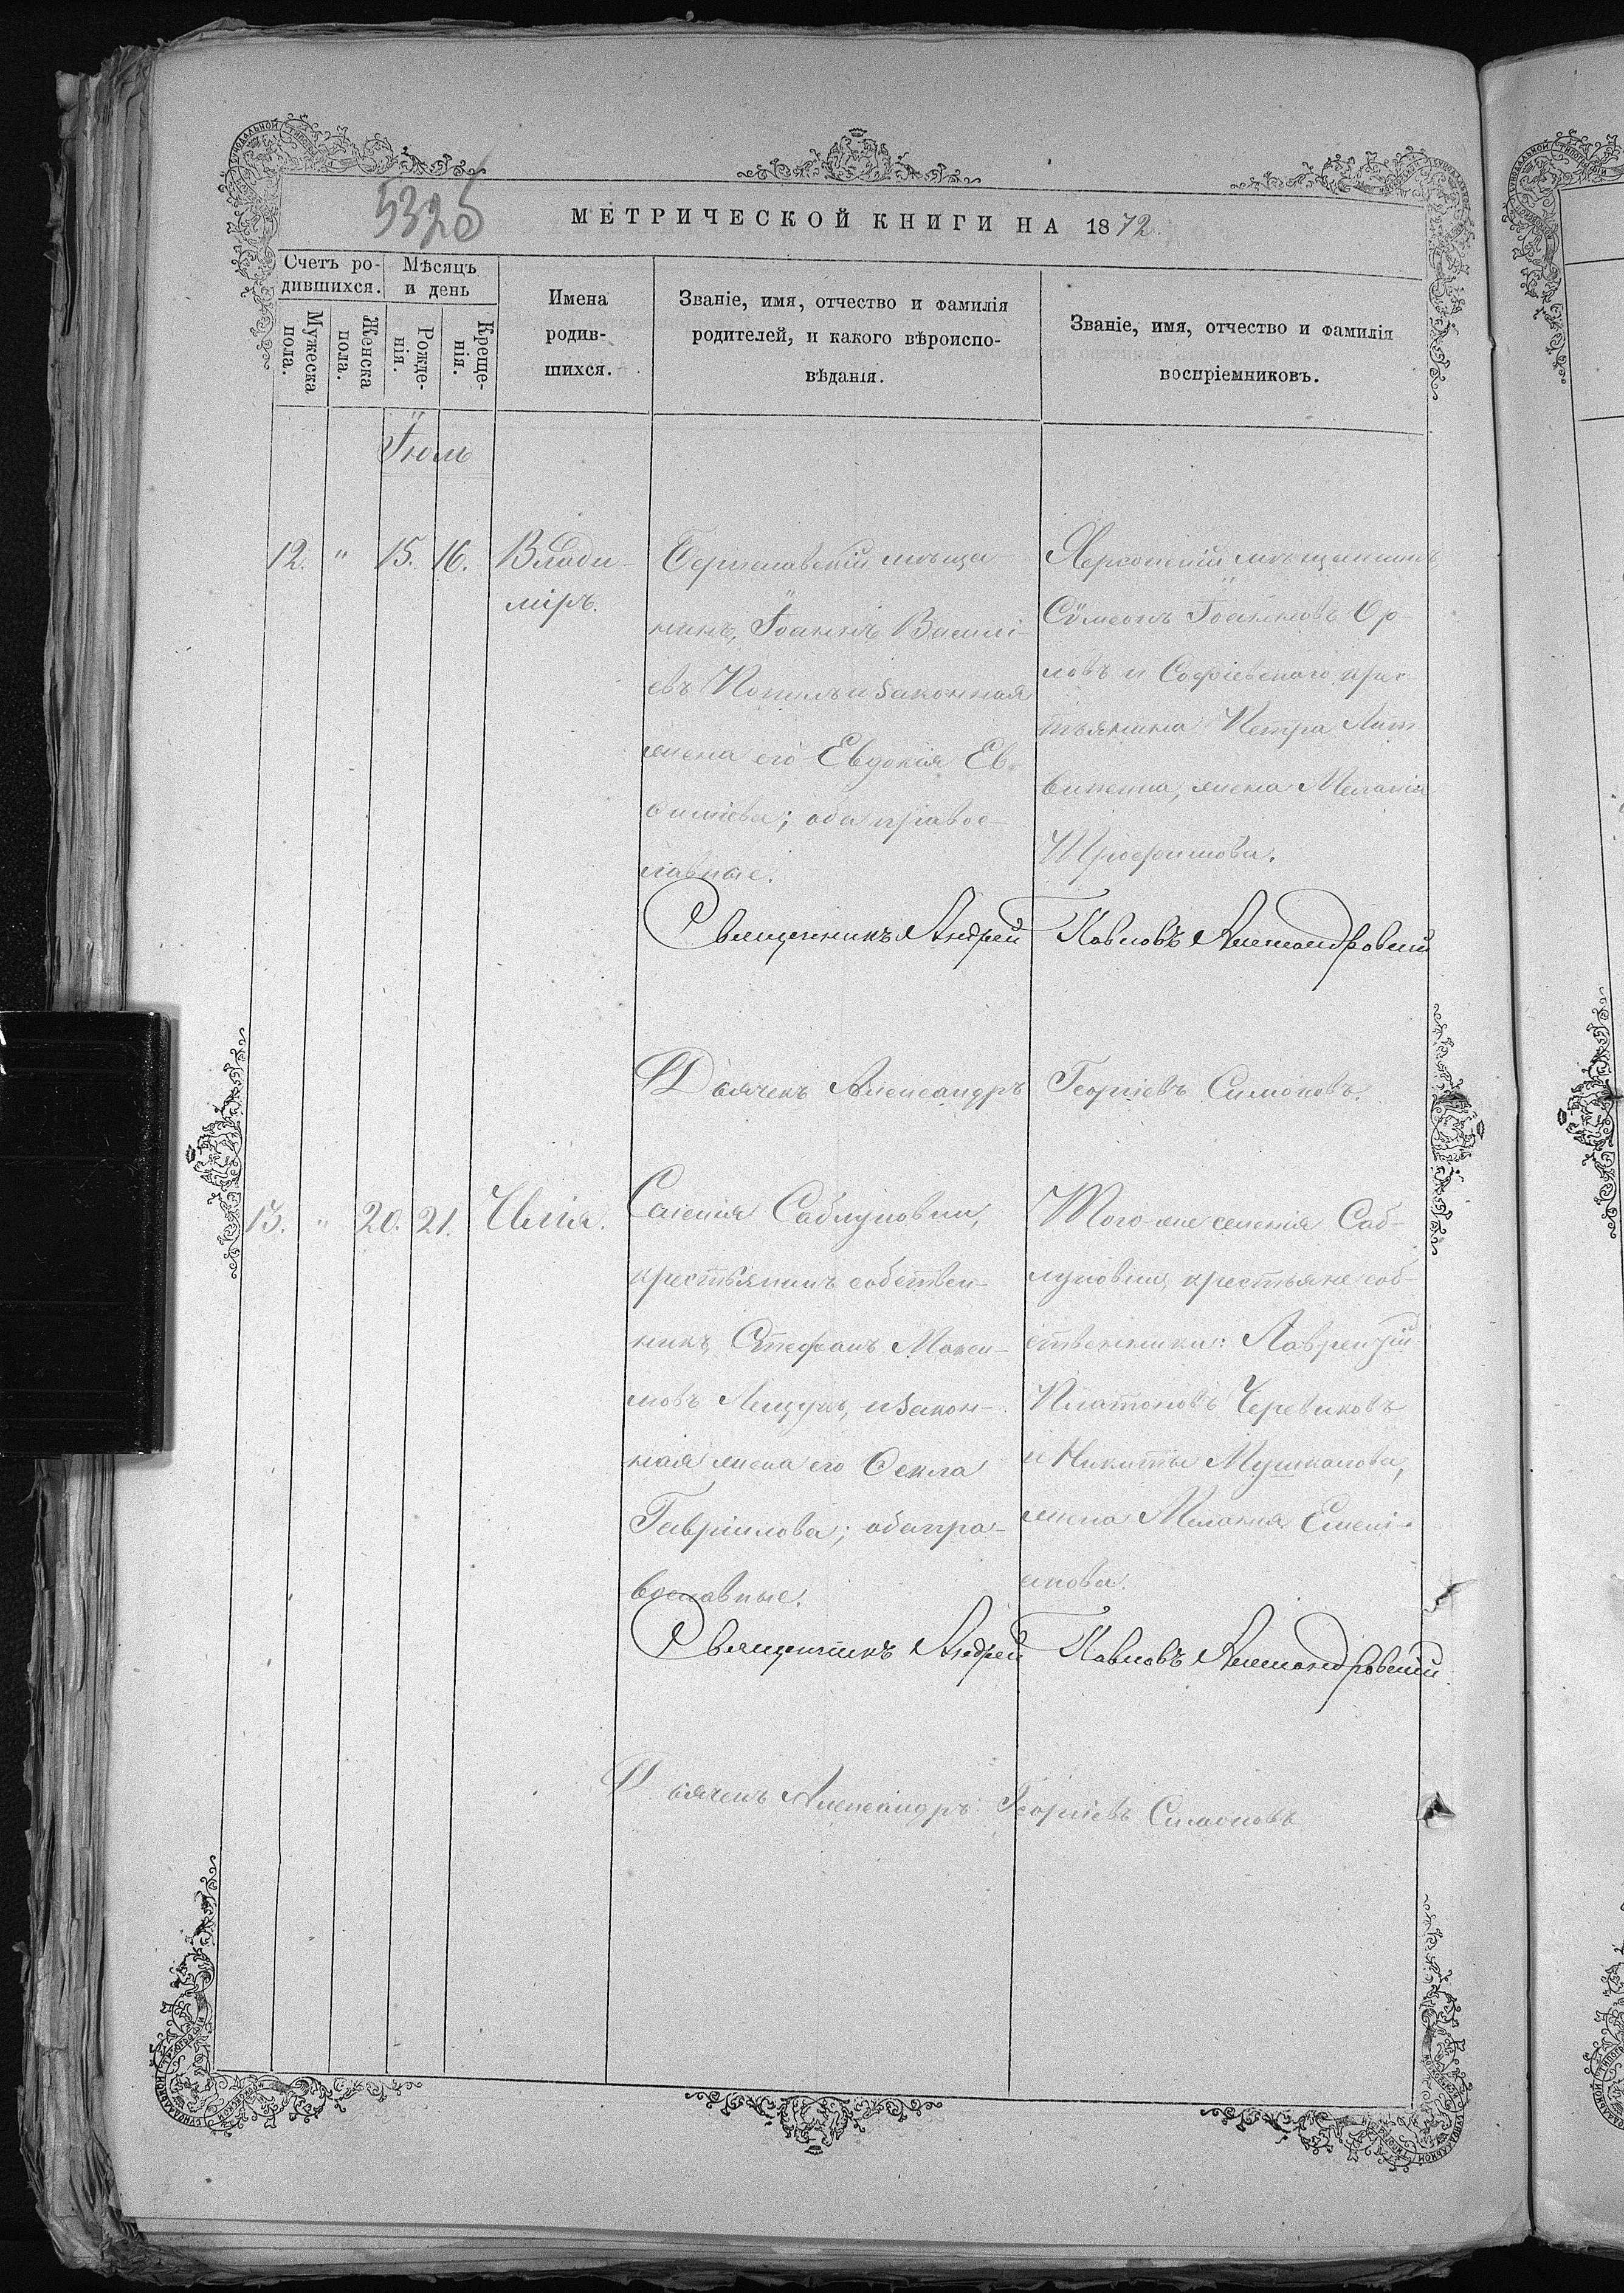 532б
МЕТРИЧЕСКОЙ КНИГИ НА 1872.
Счетъ ро-
дившихся.
Мѣсяцъ
и день
Мужеска
пола.
Женска
пола.
Рожде-
нія.
Креще-
нія.
Имена
родив-
шихся.
Званіе, имя, отчество и фамилія
родителей, и какого вѣроиспо-
вѣданія.
Званіе, имя, отчество и фамилія
воспріемниковъ.
Іюль
12. " 15. 16.
Влади-
міръ.
Бериславскій мѣща-
нинъ, Іоаннъ Василі-
евъ и законная
жена его Евдокія Ев-
ѳиміева; оба правос-
лавные.
Херсонскій мѣщанинъ
Сѵмеонъ Іоанновъ Ор-
ловъ и Софіевскаго крес-
тьянина Петра Лит-
виненка, жена Меланія
Трофимова.
Священникъ Андрей Павловъ Александровскій
Дьячекъ Александръ Георгіевъ Симоновъ.
13. " 20. 21.
Илія.
Селенія Саблуковки,
крестьянинъ собствен-
никъ, Стефанъ Макси-
мовъ и закон-
ная жена его Ѳекла
Гавріилова; оба пра-
вославные.
Того-же селенія Саб-
луковки, крестьяне соб-
ственники: Лаврентій
Платоновъ Черевиковъ
и Никиты Мушкалова,
жена Меланія
Священникъ Андрей Павловъ Александровскій
Дьячекъ Александръ Георгіевъ Симоновъ